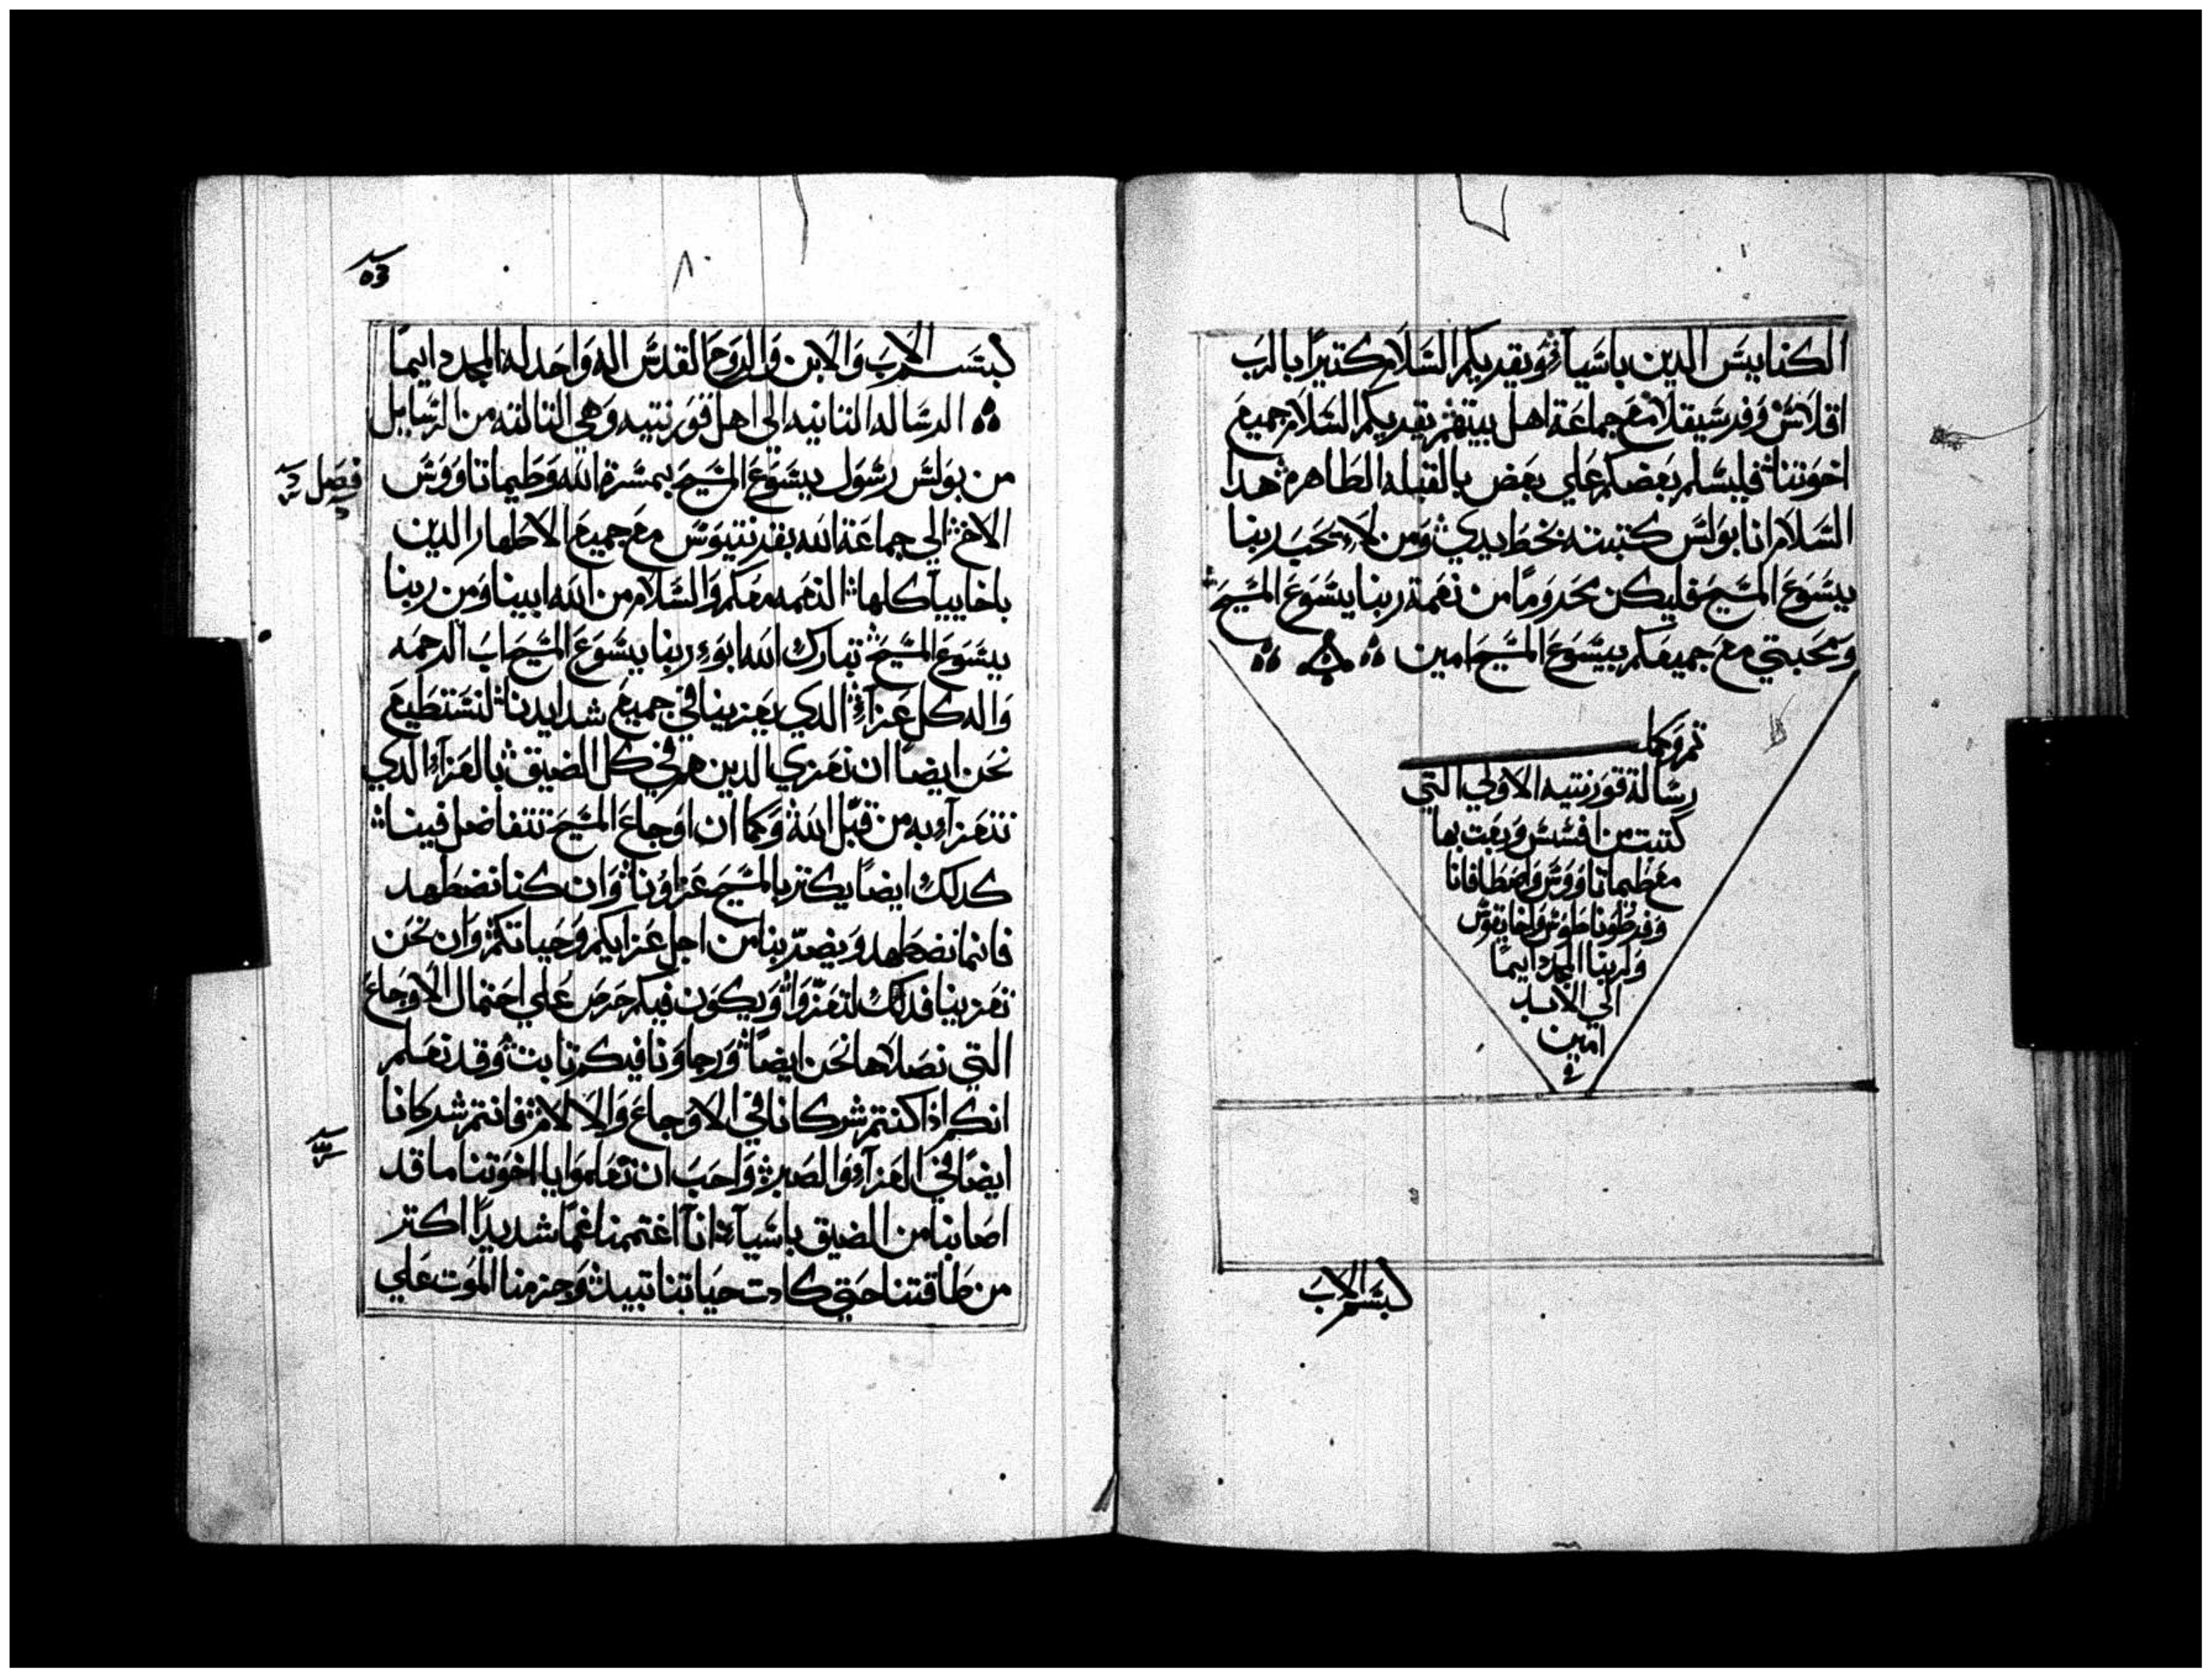 الكنايس الدين باسيا ويقريكم السلام كتيرا بالرب
اقلاس وفرسيقلا مع جماعة اهل بيتهم يقريكم السلام جميع
اخوتنا فليسلم بعضكم علي بعض بالقبله الطاهره هدا
السلام انا بولس كتبته بخط يدي ومن لا يحب ربنا
يسوع المسيح فليكن محروما من نعمة ربنا يسوع المسيح
ومحبتي مع جميعكم بيسوع المسيح امين
تم وكمل
رسالة قورنتيه الاولي التي
كتبت من افسس وبعت بها
مع طيماتاووس واصطافانا
وفرطوناطوس واخايقوس
ولربنا المجد دايما
الي الابد
امين
بسم الاب
٨٠
بسم الاب والابن والروح القدس اله واحد له المجد دايما
الرساله التانيه الي اهل قورنتيه وهي التالته من الرسايل
فصل
من بولس رسول يسوع المسيح بمسرة الله وطيماتاووس
الاخ الي جماعة الله بقرنتيوس مع جميع الاطهار الدين
باخاييا كلها النعمه معكم والسلام من الله ابينا ومن ربنا
يسوع المسيح تبارك الله ابو ربنا يسوع المسيح اب الرحمه
واله كل عزاء الدي يعزينا في جميع شدايدنا لنستطيع
نحن ايضا ان نعزي الدين هم في كل الضيق بالعزاء الدي
نتعزا به من قبل الله وكما ان اوجاع المسيح تتفاضل فينا
كدلك ايضا يكتر بالمسيح عزاونا وان كنا نضطهد
فانما نضطهد ويضر بنا من اجل عزايكم وحياتكم وان نحن
تعزينا فدلك لتعزوا ويكون فيكم حرص علي احتمال الاوجاع
التي نصلاها نحن ايضا ورجاونا فيكم تابت وقد نعلم
انكم اذا كنتم شركانا في الاوجاع والالام فانتم شركانا
ايضا في العزاء والصبر واحب ان تعلموا يا اخوتنا ما قد
اصابنا من الضيق باسيا انا اغتممنا غما شديدا اكتر
من طاقتنا حتي كادت حياتنا تبيد وجزمنا الموت علي